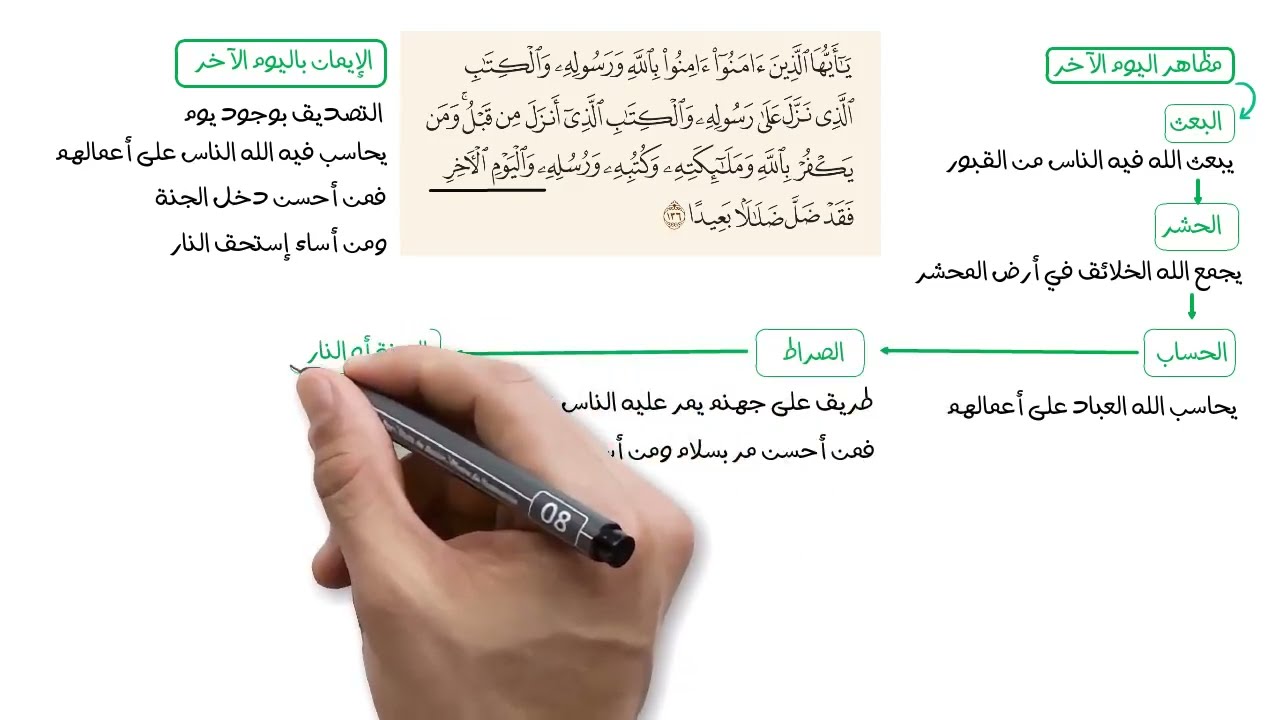 مظاهر اليوم الآخر
البعث
يبعث الله فيه الناس من القبور
الحشر
يجمع الله الخلائق في أرض المحشر
الحساب
يحاسب الله العباد على أعمالهم
الصراط
طريق على جهنم يمر عليه الناس
فمن أحسن مر بسلام ومن
أو النار
يَٰٓأَيُّهَا ٱلَّذِينَ ءَامَنُوٓا۟ ءَامِنُوا۟ بِٱللَّهِ وَرَسُولِهِۦ وَٱلْكِتَٰبِ
ٱلَّذِى نَزَّلَ عَلَىٰ رَسُولِهِۦ وَٱلْكِتَٰبِ ٱلَّذِىٓ أَنزَلَ مِن قَبْلُ ۚ وَمَن
يَكْفُرْ بِٱللَّهِ وَمَلَٰٓئِكَتِهِۦ وَكُتُبِهِۦ وَرُسُلِهِۦ وَٱلْيَوْمِ ٱلْءَاخِرِ
فَقَدْ ضَلَّ ضَلَٰلًۢا بَعِيدًا ١٣٦
الإيمان باليوم الآخر
التصديق بوجود يوم
يحاسب فيه الله الناس على أعمالهم
فمن أحسن دخل الجنة
ومن أساء إستحق النار
08